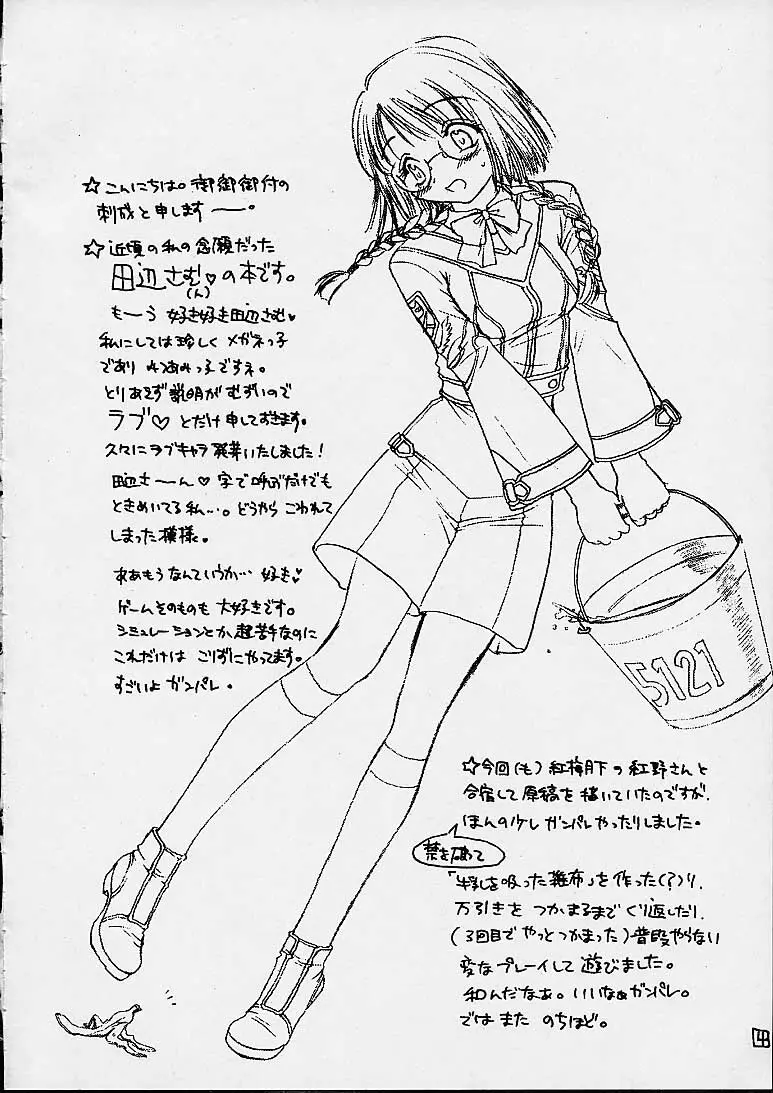 ☆こんにちは。御御御付の
刺成と申します――。
☆近頃の私の念願だった
田辺さむ♥の本です。
(ん)
もーう 好き好き田辺さむ♥
私にしては珍しくメガネっ子
であり みつあみっ子ですネ。
とりあえず説明がむずいので
ラブ♡ とだけ申しておきます。
久々にラブキャラ発芽いたしました!
田辺さーん♡ 字で呼ぶだけでも
ときめいてる私…。どうやら こわれて
しまった模様。
ああもうなんていうか… 好き♥
ゲームそのものも 大好きです。
シミュレーションとか超苦手なのに
これだけは こりずにやってます。
すごいよ ガンパレ。
5121
☆今回(も)紅梅月下の紅野さんと
合宿して原稿を描いていたのですが、
ほんの少し ガンパレやったりしました。
禁を破って
「牛乳を吸った雑布」を作った(?)り、
万引きを つかまるまで くり返したり、
(3回目で やっとつかまった)普段やらない
変なプレイして 遊びました。
和んだなぁ。いいなぁガンパレ。
では また のちほど。
4